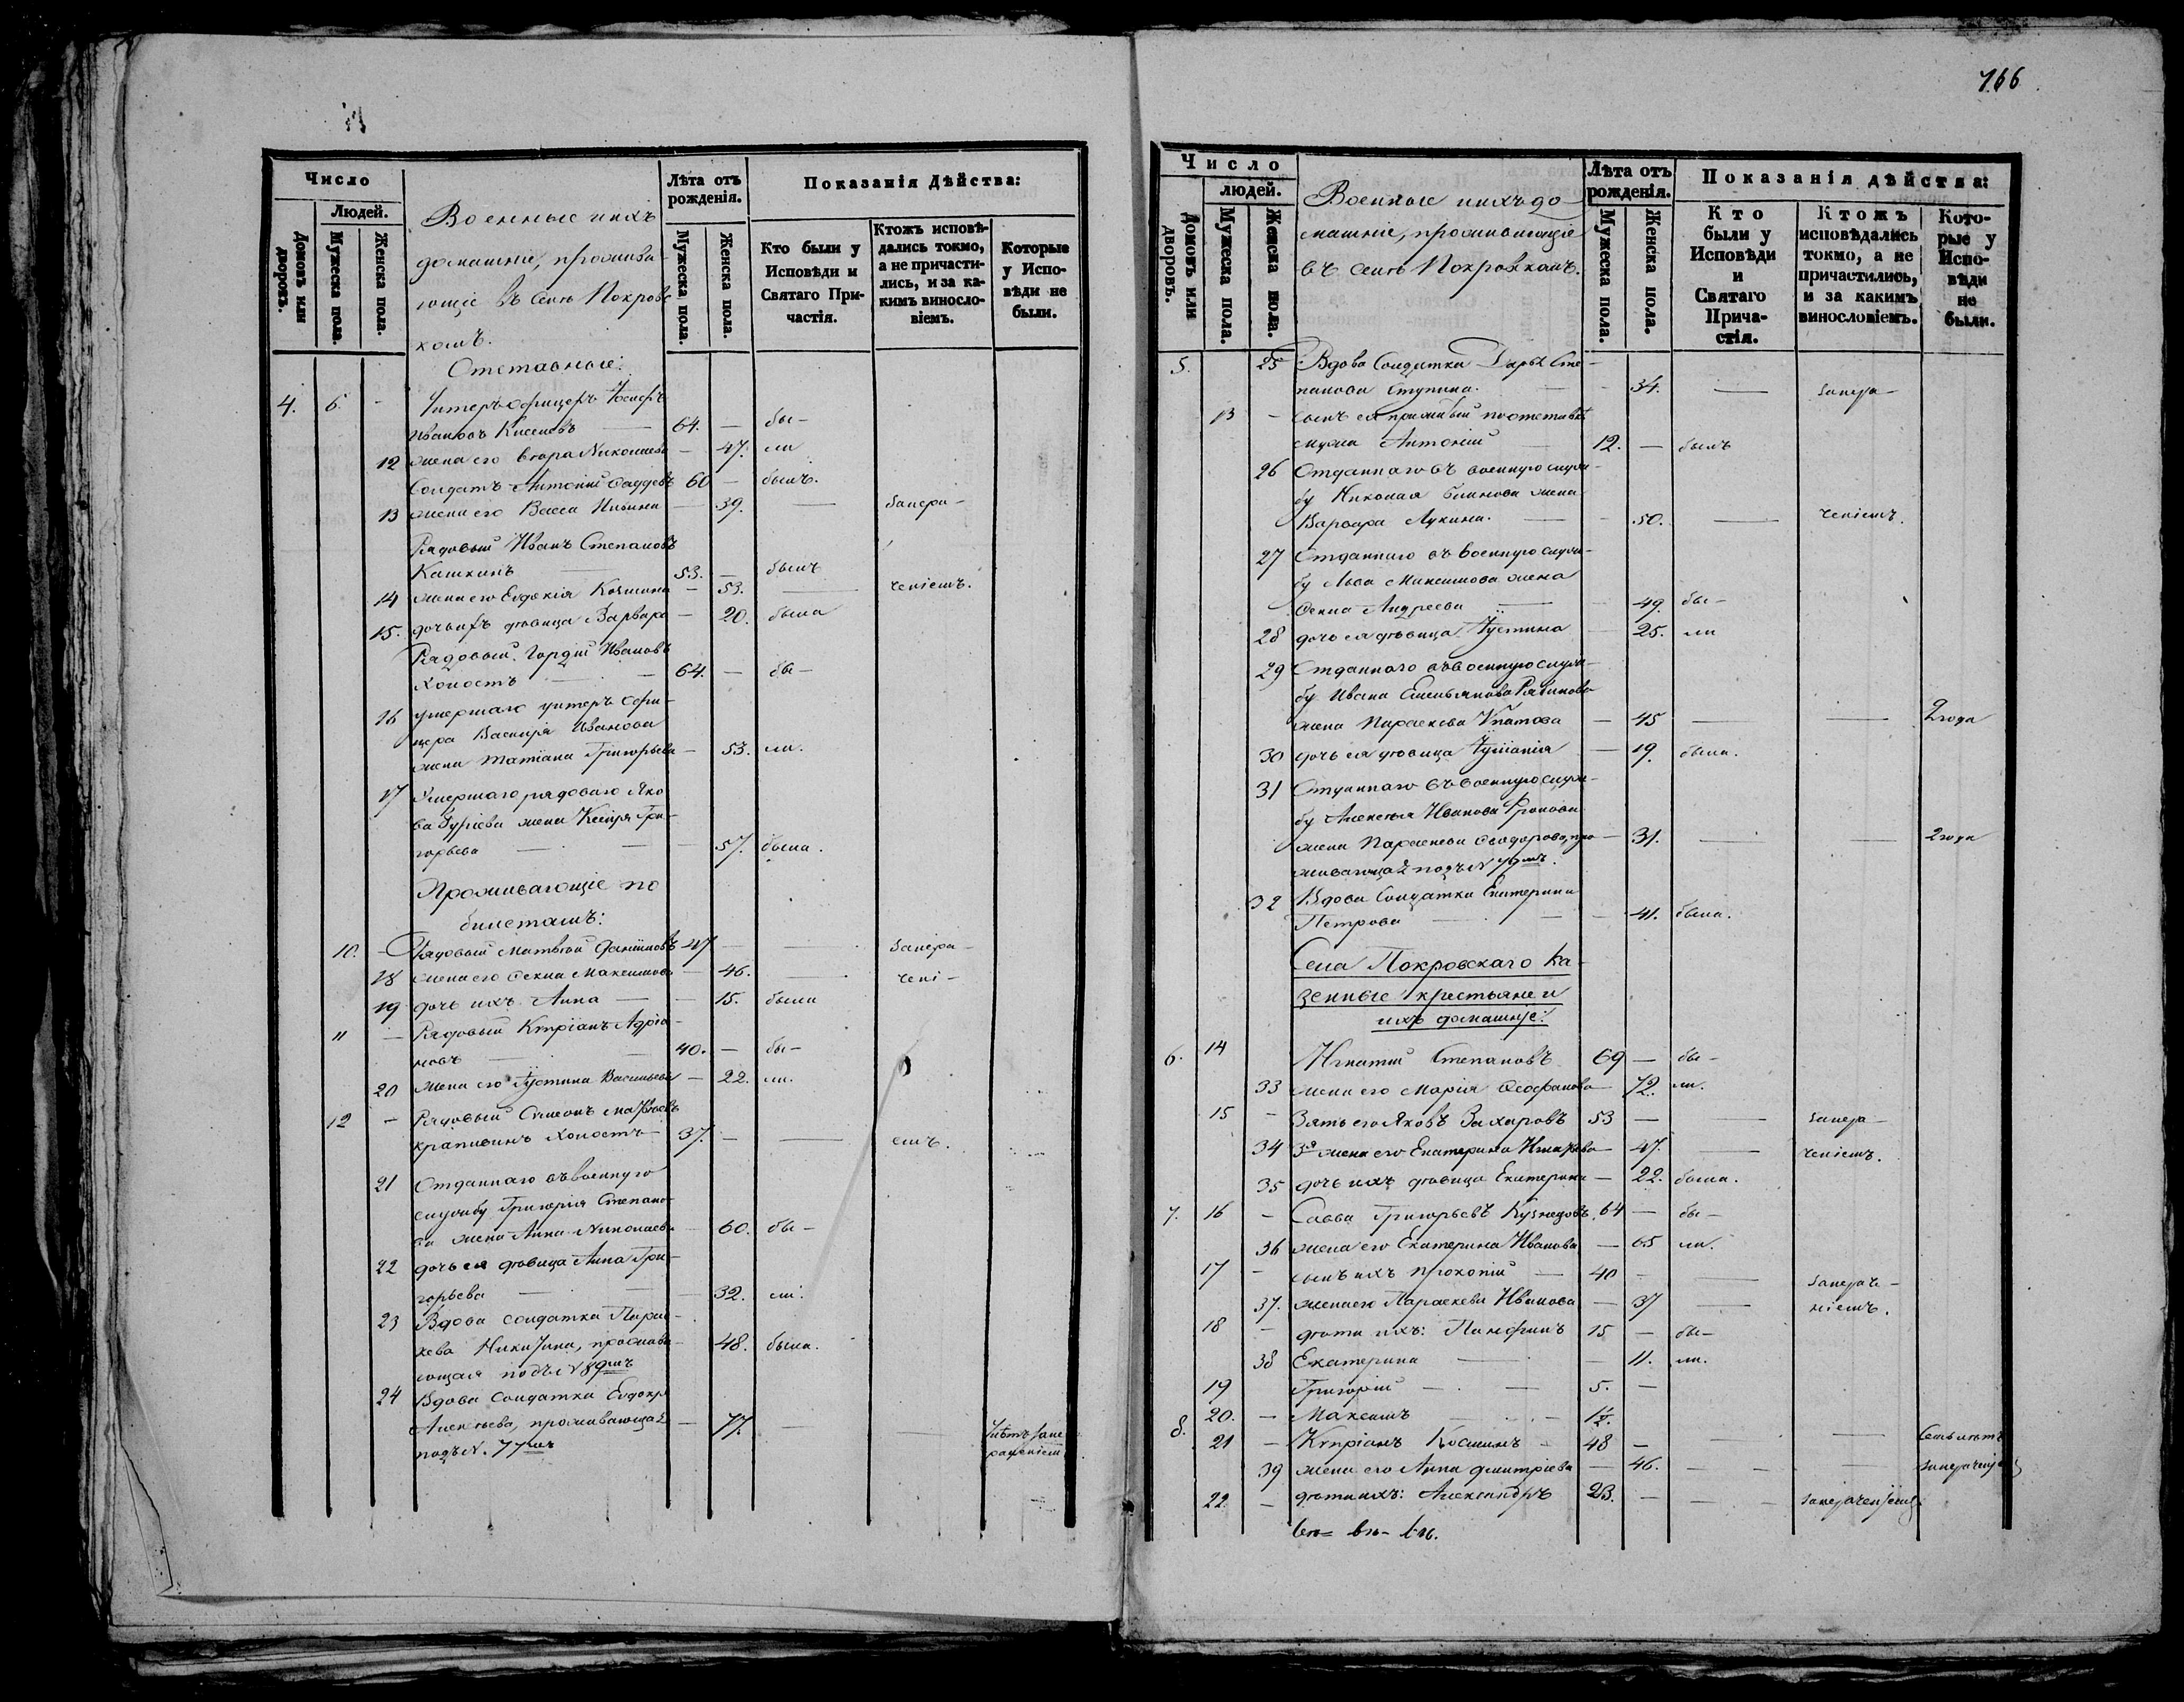 Число
Людей.
Домовъ или дворовъ.
Мужеска пола.
Женска пола.
Военные и ихъ
домашніе, прожива-
ющіе въ селѣ Покровс
комъ.
Лѣта отъ рожденія.
Мужеска пола.
Женска пола.
Показанія Дѣйства:
Кто были у Исповѣди и Святаго При-частія.
Ктожъ исповѣ-дались токмо, а не причасти-лись, и за ка-кимъ винословіемъ.
Которые у Испо-вѣди не были.
Отставные:
4. 6. - Унтеръ-офицеръ Іосифъ
Ивановъ 64. — бы-
12 жена его вторая — 47. ли
Солдатъ Антоній 60 — былъ.
13 жена его Васса Ильина — 39. — запера-
Рядовый Иванъ Степановъ
Кашкинъ — 53. — былъ
14 жена его Евдокія — 53. — ченіемъ.
15. дочь ихъ дѣвица Варвара — 20. была
Рядовый Гордій Ивановъ
холостъ — 64. — бы-
16 умершаго унтеръ офи-
цера Василія Иванова
жена Татіана Григорьева — 53. ли.
17 Умершаго рядоваго Яко
ва жена Ксенія Гри-
горьева — 57. была.
Проживающіе по
билетамъ:
10. - Рядовый Матвѣй 47 — — запера-
18 жена его Ѳекла Максимова — 46. — чені-
19 дочь ихъ Анна — — 15. была
11 - Рядовый Кипріанъ Адріа-
новъ — 40. — бы-
20 жена его Іустина Васильева — 22. ли.
12 - Рядовый Симеонъ
Крапивинъ холостъ — 37. — — емъ.
21 Отданнаго въ военную
службу Григорія Степано-
ва жена Анна Николаева 60. бы-
22 дочь ея дѣвица Анна Гри-
горьева — 32. ли.
23 Вдова солдатка Парас-
кева Никитина, прожива-
ющая подъ № 89мъ 48. была.
24 Вдова солдатка Евдокія
Алексѣева, проживающая — 77. — —
подъ № 77мъ
166
Число
людей.
Домовъ или дворовъ.
Мужеска пола.
Женска пола.
Военные и ихъ до-
машніе, проживающіе
въ селѣ Покровскомъ.
Лѣта отъ рожденія.
Мужеска пола.
Женска пола.
Показанія дѣйства:
Кто были у Исповѣди и Святаго Прича-стія.
Ктожъ исповѣдались токмо, а не причастились, и за какимъ винословіемъ.
Кото-рые у Испо-вѣди не были.
5. 25 Вдова Солдатка Дарья Сте-
панова Ступина. — 34. — запера-
13 - сынъ ея прижитый по отставкѣ
мужа Антоній 12. — былъ
26 Отданнаго въ военную служ-
бу Николая Блинова жена
Варвара Лукина. — 50. — ченіемъ.
27 Отданнаго въ военную служ-
бу Льва Максимова жена
Ѳекла Андреева — 49. бы-
28 дочь ея дѣвица Іустина 25. ли
29 Отданнаго въ военную служ-
бу Ивана Емельянова Рябинова
жена Параскева Ипатова — 45 — — 2 года
30 дочь ея дѣвица Іуліанія — 19. была.
31 Отданнаго въ военную служ-
бу Алексѣя Иванова Фролова
жена Параскева Ѳеодорова, про- — 31. — — 2 года
живающая подъ № 77мъ.
32 Вдова Солдатка Екатерина
Петрова — 41. была.
Села Покровскаго Ка-
зенные крестьяне и
ихъ домашніе:
6. 14 Игнатій Степановъ 69 — бы-
33 жена его Марія Ѳеофанова — 72. ли.
15 - Зять его Яковъ Захаровъ 53 — — запера-
34 3я жена его Екатерина Игнатьева — 47. — ченіемъ.
35 дочь ихъ дѣвица Екатерина — 22. была.
7. 16 - Савва Григорьевъ Кузнецовъ 64 — бы-
36 жена его Екатерина Иванова — 65 ли.
17 - сынъ ихъ Прокопій — 40 — — запераче-
37. жена его Параскева Иванова — 37 — ніемъ.
18 - дѣти ихъ: Панфилъ 15 — бы-
38 Екатерина — 11. ли.
19 Григорій — 5. —
20. - Максимъ — 1½.
8. 21 - Кипріанъ Косминъ 48 — — — Семь лѣтъ
39 жена его Анна Дмитріева — 46. — —
22. - дѣти ихъ: Александръ 23. — — заперачен